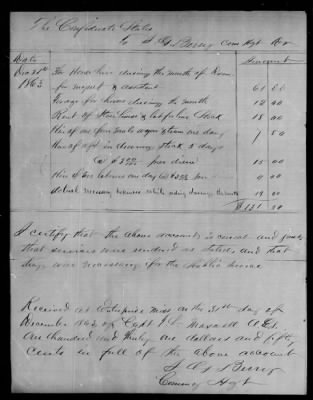 The Confederate States
To J. A. J. Berry Com Hgt Dr
Date Amount
Dec 31st For Horse hire during the month of Decem
1863 for myself & assistant 61 50
Forage for horses during the month 12 00
Rent of for 18 00
Hire of one four mule wagon & team one day 7 50
Hire of in driving stock 5 days
@ $3 per diem 15 00
Hire of labores one day @ $3 per 9 00
Actual necessary expenses while during the month 18 00
$131 50
I certify that the above account is correct and just
that services were rendered as stated and that
they were necessary for the Public Service
Received at Enterprise Miss on the 31st day of
December 1863 of Capt J. Maxwell
One hundred and thirty one dollars and fifty
cents in full of the above account
J A J Berry
Hgt